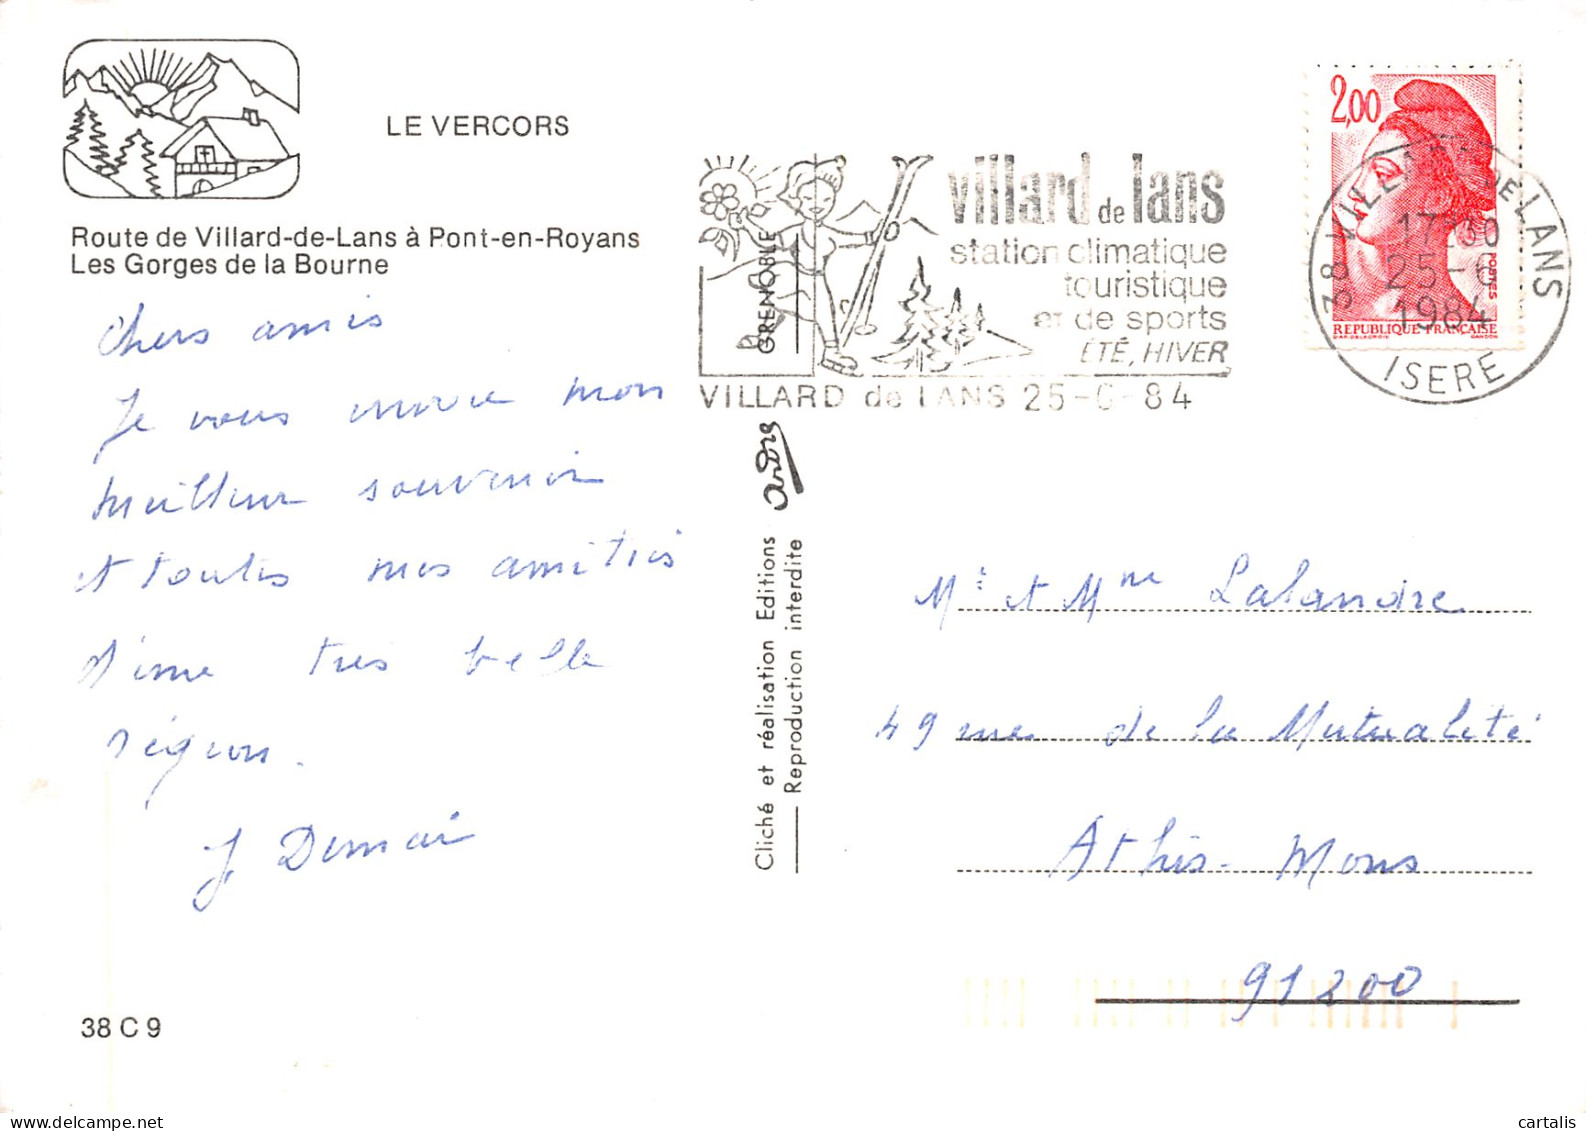 LE VERCORS
Route de Villard-de-Lans à Pont-en-Royans
Les Gorges de la Bourne
Chers amis
Je vous envoie mon
meilleur souvenir
et toutes mes amitiés
d'une très belle
région.
38 C 9
GRENOBLE
Cliché et réalisation Editions
Reproduction interdite
villard de lans
station climatique
touristique
et de sports
ÉTÉ, HIVER
VILLARD de LANS 25-6-84
2,00
POSTES
REPUBLIQUE FRANÇAISE
D'AP. DELACROIX GANDON
38 VILLARD-DE-LANS
17-30
25-6
1984
ISERE
Mr et Mme Lalandre
49 rue de la Mutualité
Athis-Mons
91200
delcampe.net
cartalis